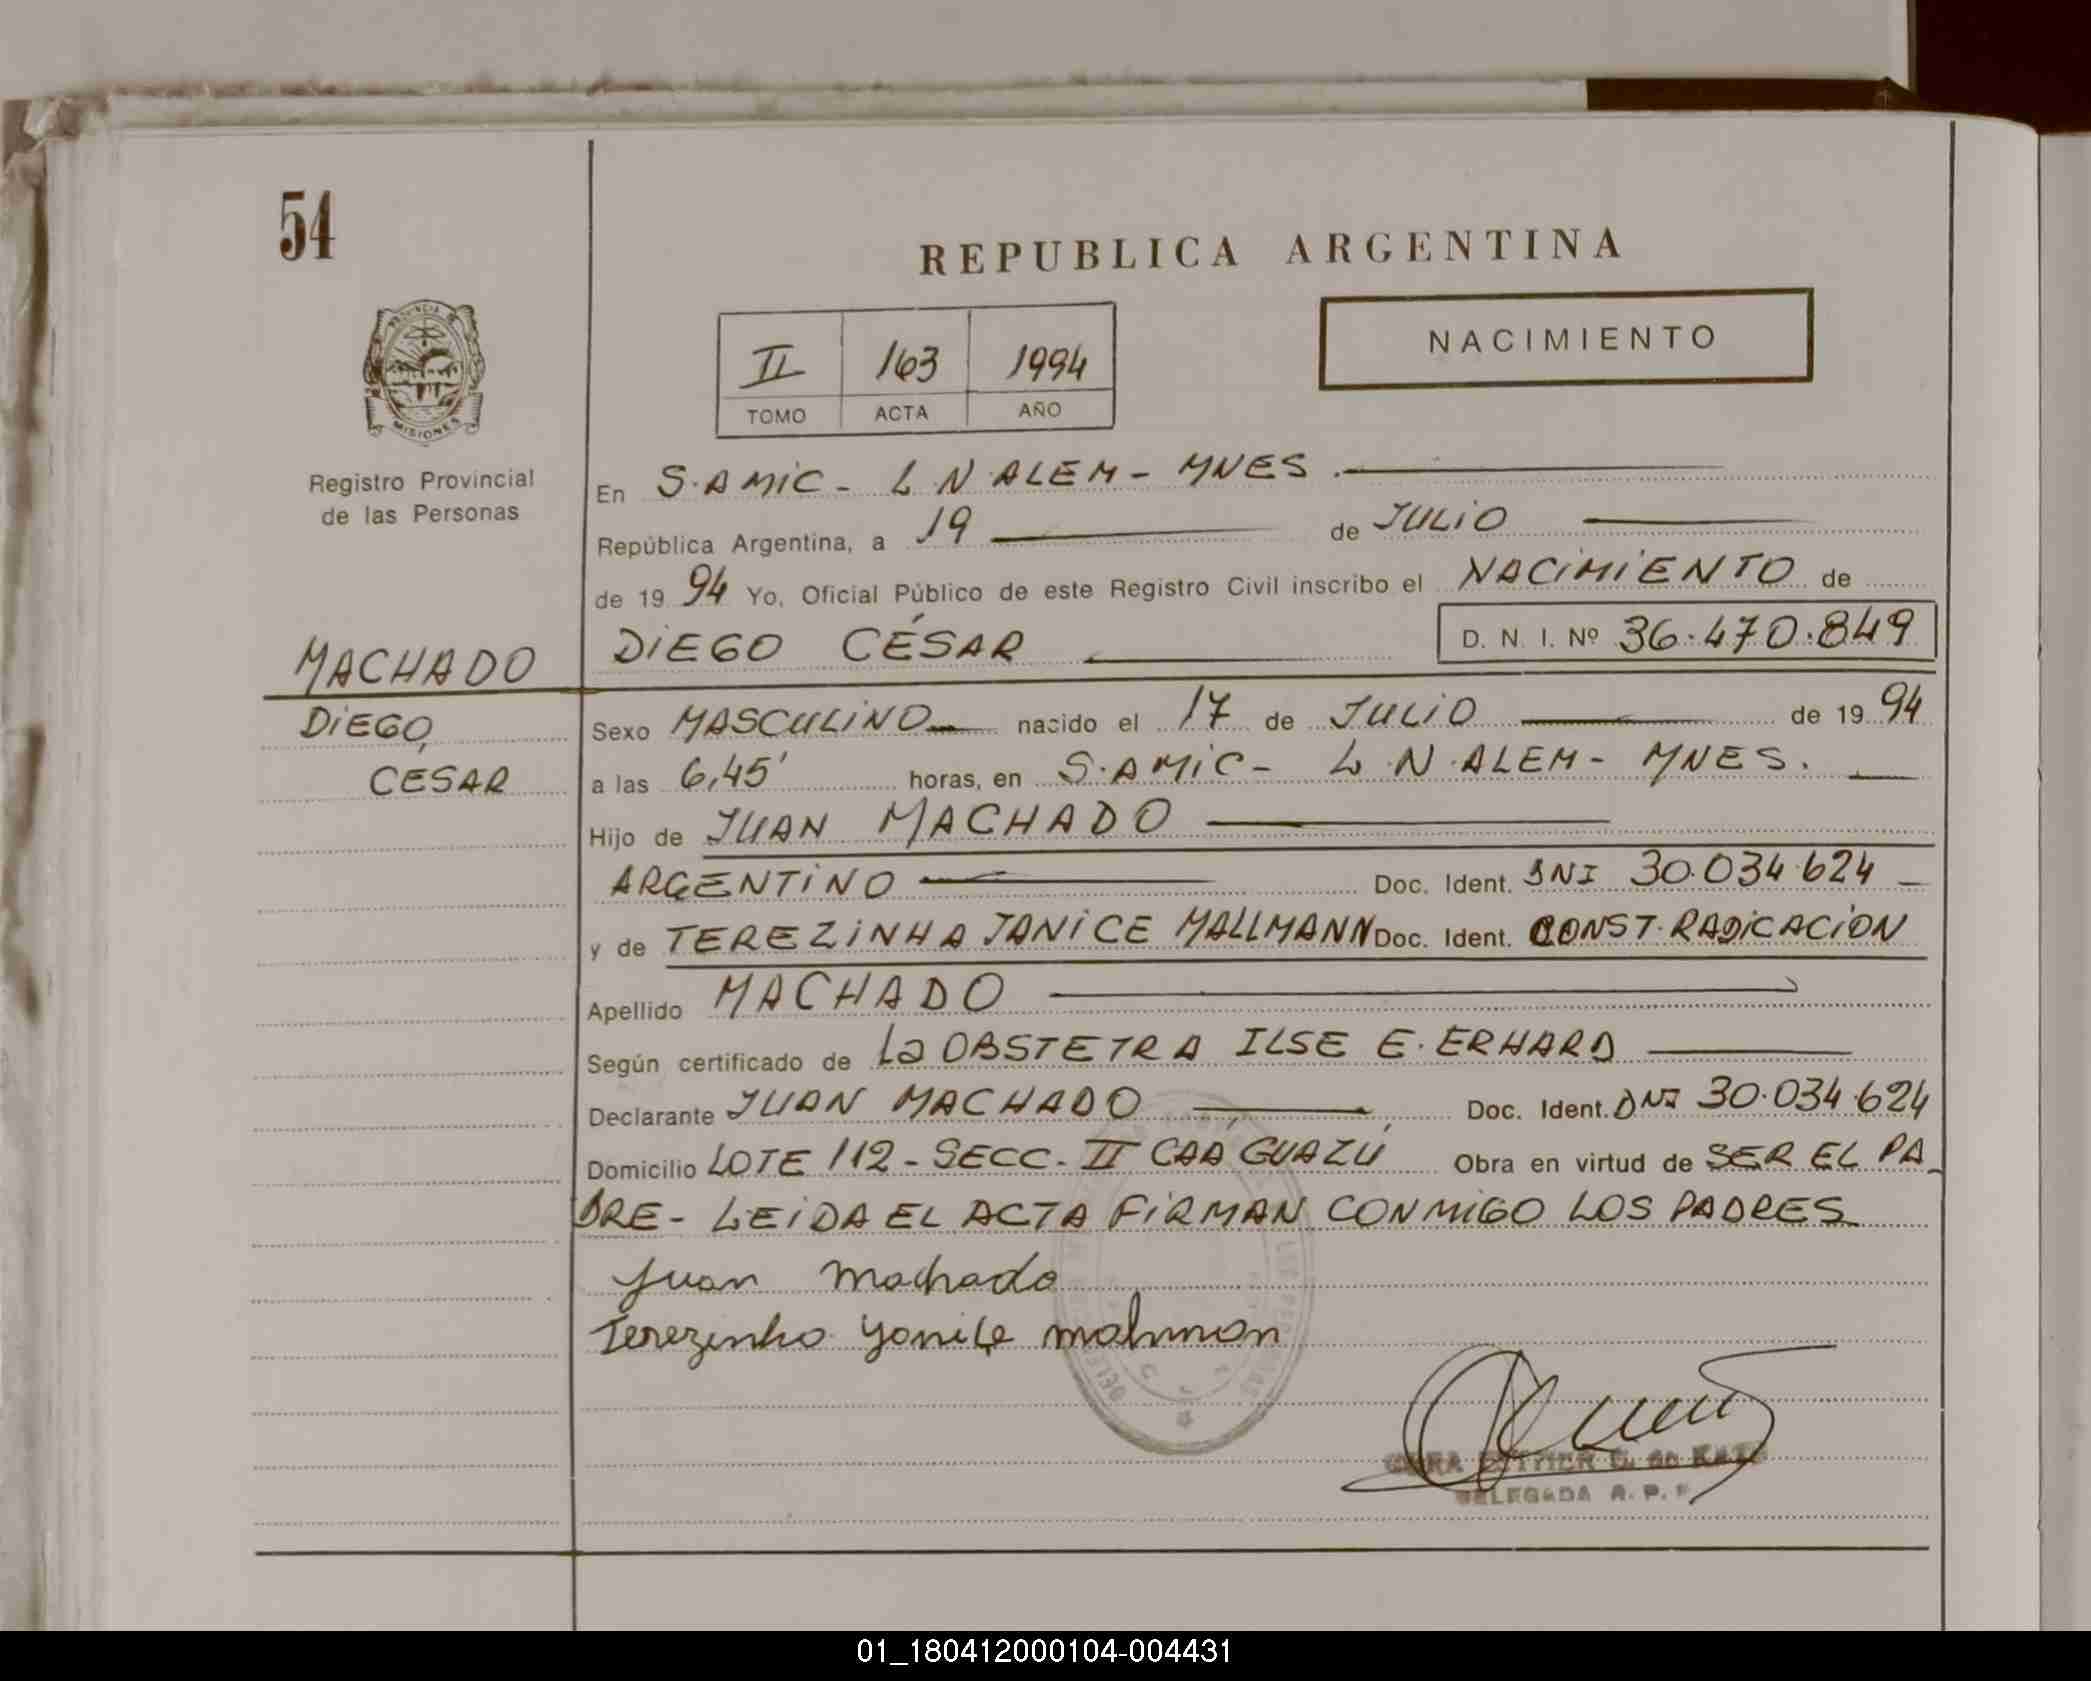 54
REPUBLICA ARGENTINA
II 163 1994
TOMO ACTA AÑO
NACIMIENTO
PROVINCIA DE
MISIONES
Registro Provincial
de las Personas
En S.AMIC - L.N.ALEM - MNES.
República Argentina, a 19 de JULIO
de 1994 Yo, Oficial Público de este Registro Civil inscribo el NACIMIENTO de
MACHADO DIEGO CÉSAR D. N. I. Nº 36.470.849
DIEGO
CESAR
Sexo MASCULINO nacido el 17 de JULIO de 1994
a las 6,45' horas, en S.AMIC - L.N.ALEM - MNES.
Hijo de JUAN MACHADO
ARGENTINO Doc. Ident. DNI 30.034.624
y de TEREZINHA JANICE MALLMANN Doc. Ident. CONST.RADICACION
Apellido MACHADO
Según certificado de La OBSTETRA ILSE E. ERHARD
Declarante JUAN MACHADO Doc. Ident. DNI 30.034.624
Domicilio LOTE 112 - SECC - II CAA GUAZÚ Obra en virtud de SER EL PA
DRE - LEIDA EL ACTA FIRMAN CONMIGO LOS PADRES
Juan Machado
Terezinha Yanice malmman
ESTHER de
DELEGADA R. P. P.
01_180412000104-004431